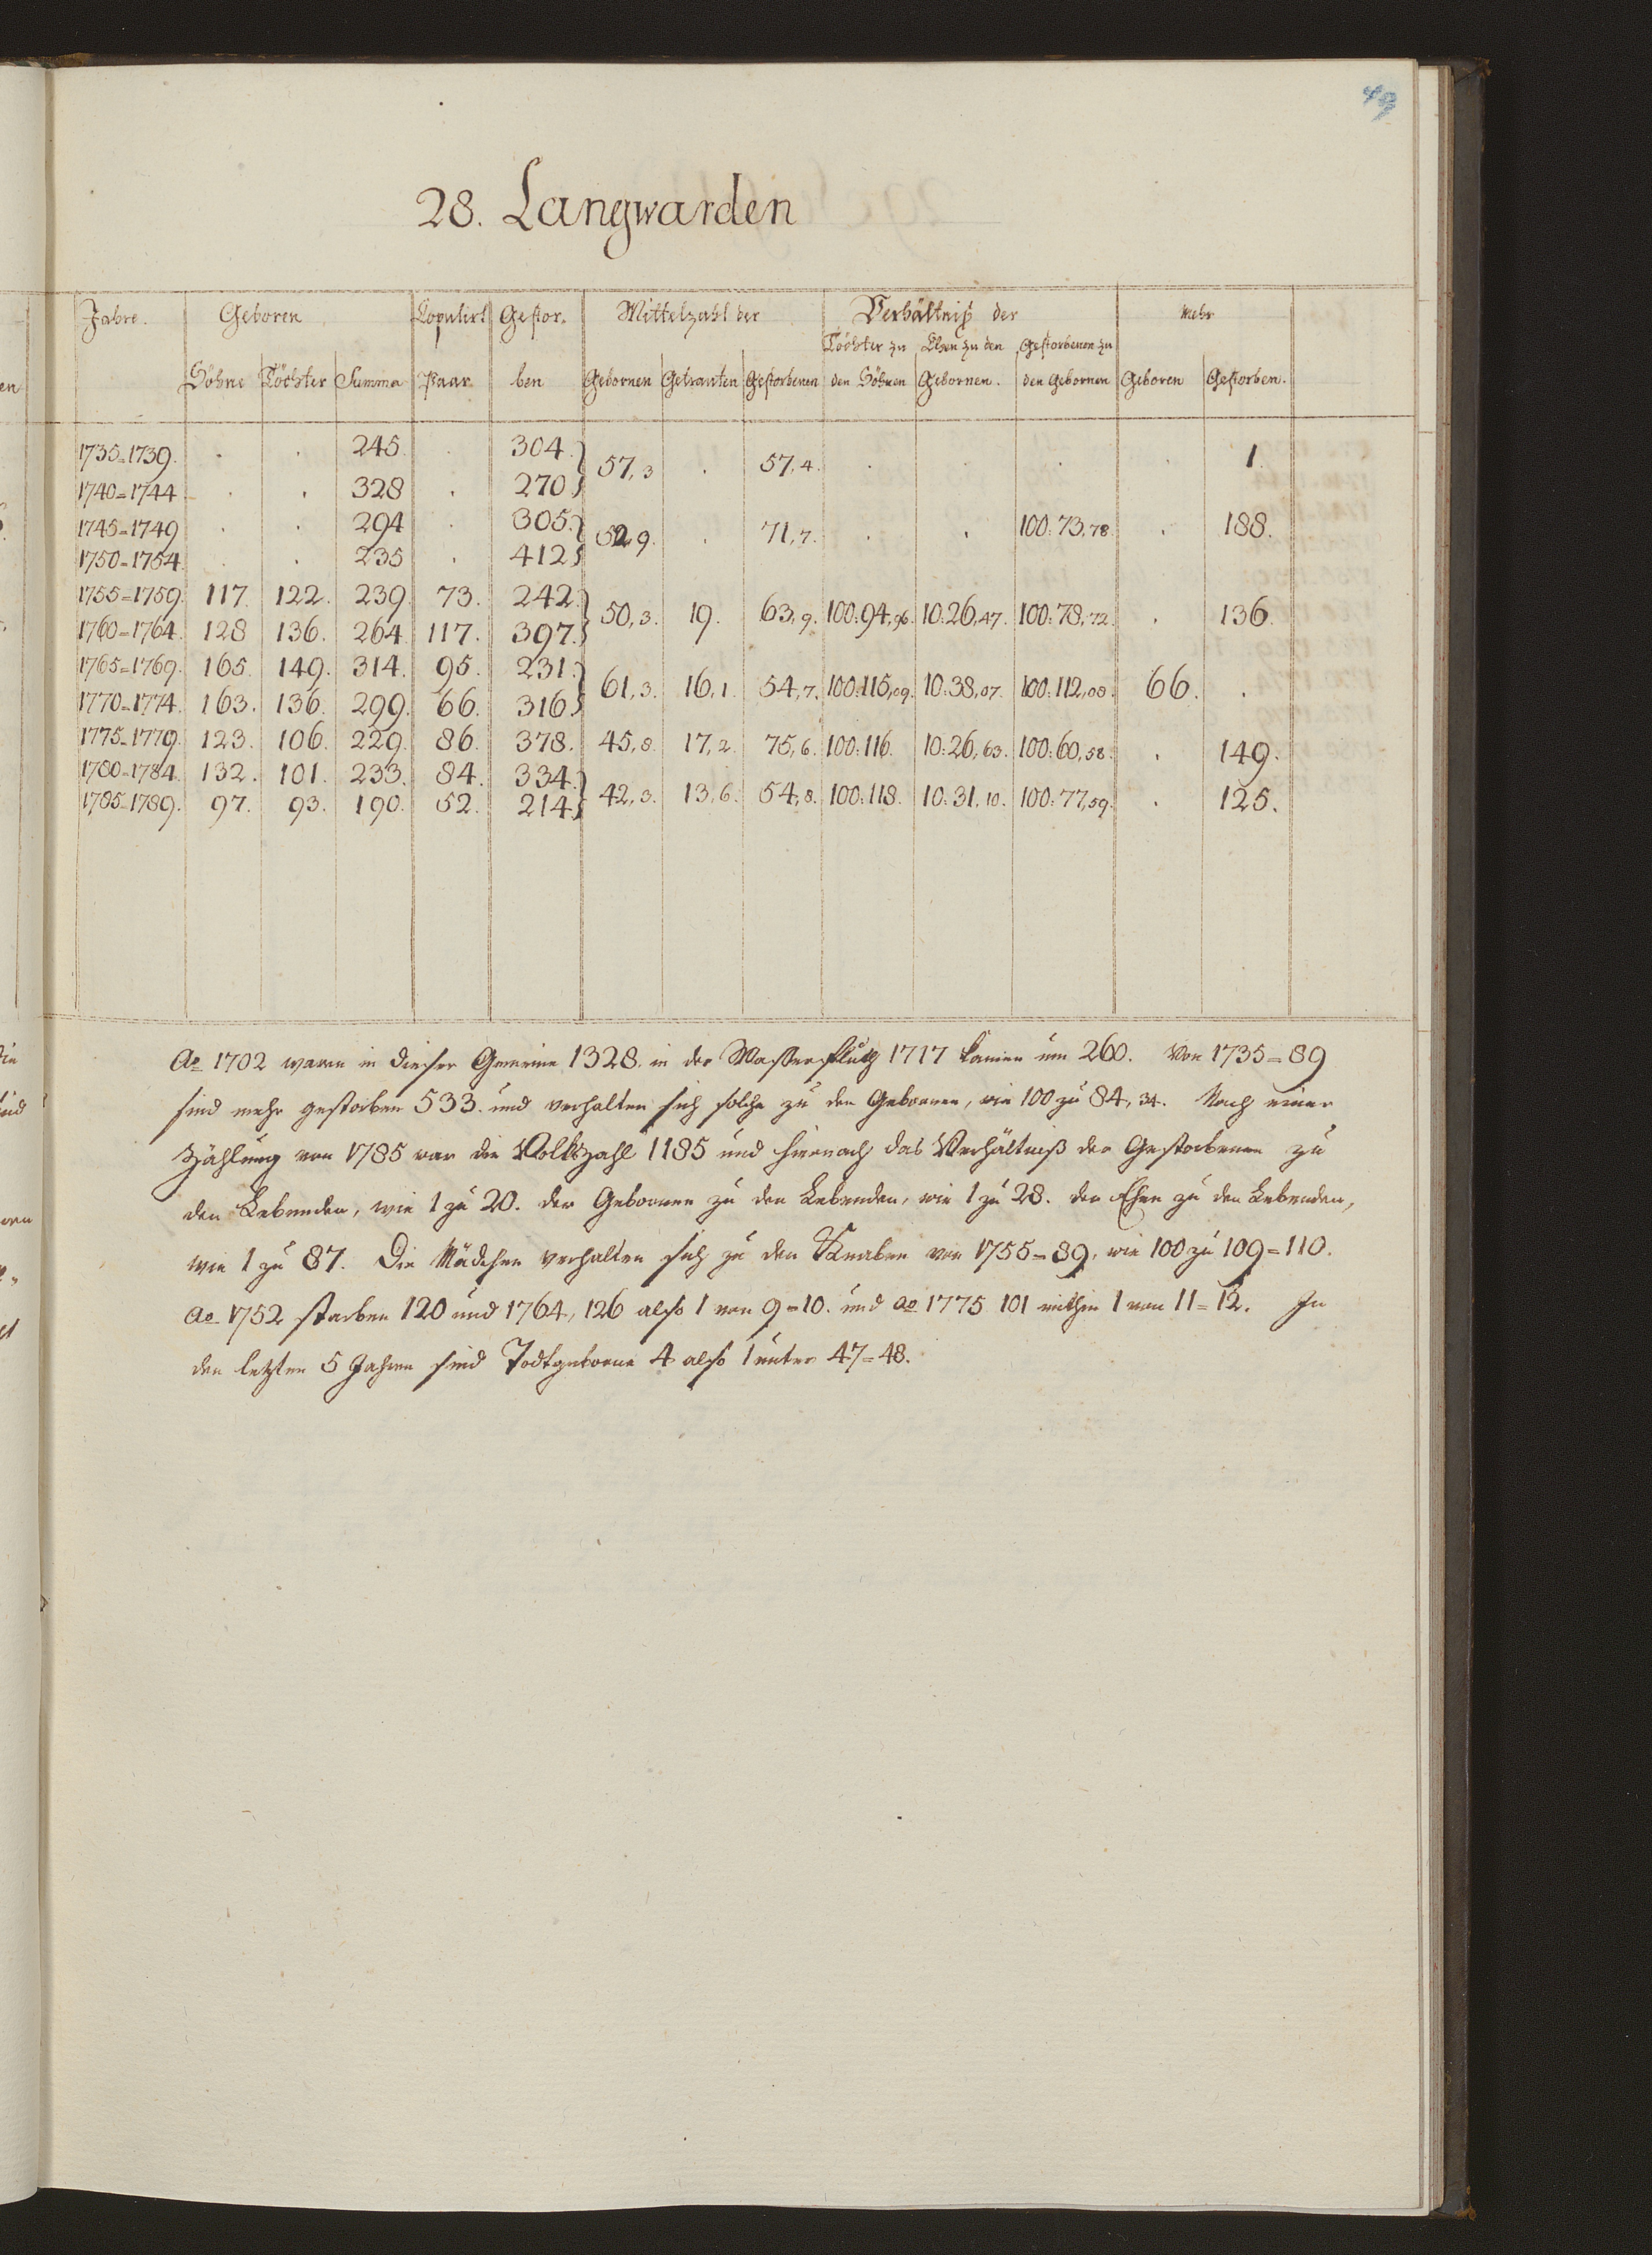 49
28. Langwarden
Jahre. Geboren Copulirt Gestor- Mittelzahl der Verhältniß der Mehr
Töchter zu Ehen zu den Gestorbenen zu
Söhne Töchter Summa Paar ben Gebornen Getrauten Gestorbenen den Söhnen Gebornen. den Gebornen Geboren Gestorben.
1735=1739. . . 245. . 304. 57,3 . 57,4. . . . . 1.
1740=1744 . . 328 . 270
1745=1749 . . 294 . 305. 52,9. . 71,7. . . 100:73,78. . 188.
1750=1754. . . 235 . 412
1755=1759. 117. 122. 239. 73. 242. 50,3. 19. 63,9. 100:94,96. 10:26,47. 100:78,72. . 136.
1760=1764. 128 136. 264. 117. 397.
1765=1769. 165. 149. 314. 95. 231. 61,3. 16,1. 54,7. 100:115,09. 10:38,07. 100:112,08. 66. .
1770=1774. 163. 136. 299. 66. 316.
1775=1779. 123. 106. 229. 86. 378. 45,8. 17,2. 75,6. 100:116. 10:26,63. 100:60,58. . 149.
1780=1784. 132. 101. 233. 84. 334. 42,3. 13,6. 54,8. 100:118. 10:31,10. 100:77,59. . 125.
1785=1789. 97. 93. 190. 52. 214.
Ao 1702 waren in dieser Gemeine 1328. in der Wasserfluth 1717 kamen um 260. Von 1735=89
sind mehr gestorben 533. und verhalten sich solche zu den Gebornen, wie 100 zu 84,34. Nach einer
Zählung von 1785 war die Volkszahl 1185 und hiernach das Verhältniß der Gestorbenen zu
den Lebenden, wie 1 zu 20. der Gebornen zu den Lebenden, wie 1 zu 28. der Ehen zu den Lebenden,
wie 1 zu 87. Die Mädchen verhalten sich zu den Knaben von 1755=89, wie 100 zu 109=110.
Ao 1752 starben 120 und 1764, 126 also 1 von 9=10. und ao 1775 101 mithin 1 von 11=12. In
den letzten 5 Jahren sind Todtgeborne 4 also 1 unter 47=48.